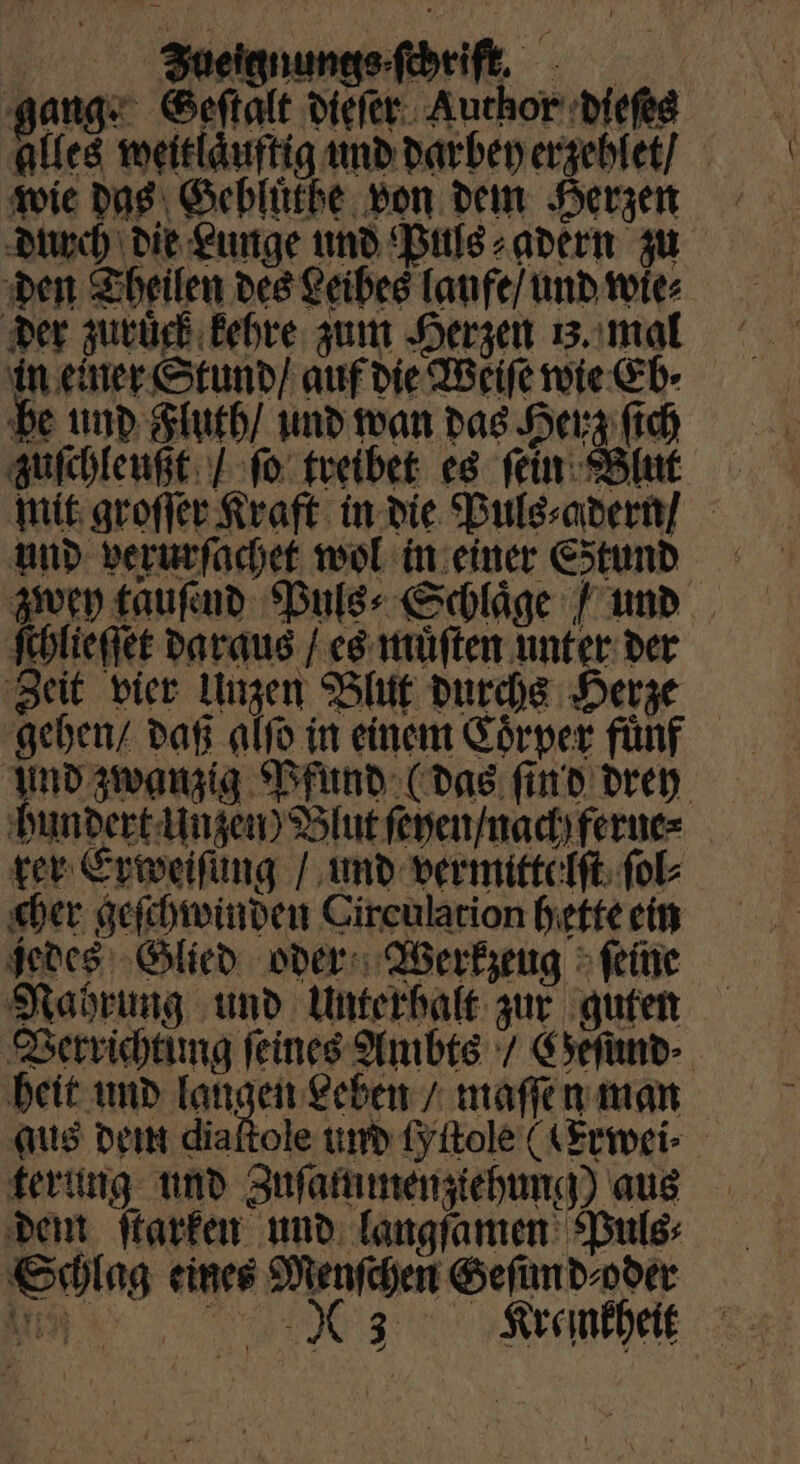 Zueignungs-ſchrift.
gang. Geſtalt dieſer Author dieſes
alles weitlaͤuftig und darbey erzehlet/
wie das Gebluͤthe von dem Herzen
durch die Lunge und Puls-adern zu
den Theilen des Leibes laufe/ und wie-
der zuruͤck kehre zum Herzen 13. mal
in einer Stund/ auf die Weiſe wie Eb-
be und Fluth/ und wan das Herz ſich
zuſchleußt / ſo treibet es ſein Blut
mit groſſer Kraft in die Puls-adern/
und verurſachet wol in einer Stund
zwey tauſend Puls- Schlaͤge / und
ſchlieſſet daraus / es muͤſten unter der
Zeit vier Unzen Blut durchs Herze
gehen/ daß alſo in einem Coͤrper fuͤnf
und zwanzig Pfund (das ſind drey
hundert Unzen) Blut ſeyen/nach ferne-
rer Erweiſung / und vermittelſt ſol-
cher geſchwinden Circulation hette ein
jedes Glied oder Werkzeug ſeine
Nahrung und Unterhalt zur guten
Verrichtung ſeines Ambts / Geſund-
heit und langen Leben / maſſen man
aus dem diaſtole und ſyſtole (Erwei-
terung und Zuſammenziehung) aus
dem ſtarken und langſamen Puls-
Schlag eines Menſchen Geſund-oder
)( 3 Krankheit